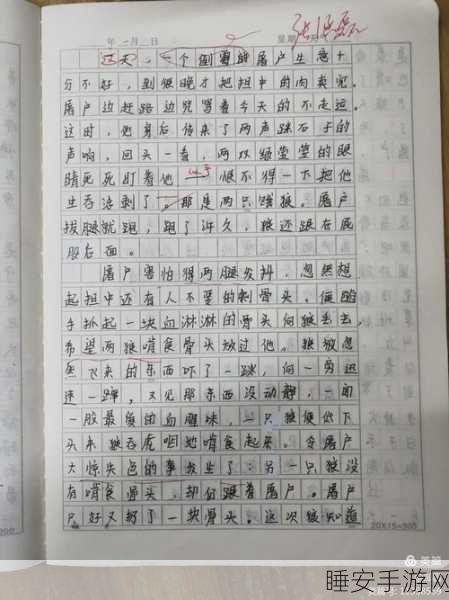 年 月 日 星期
这天，一个倒霉的屠户生意十
分不好，到很晚才把担中的肉卖完。
屠户边赶路边咒骂着今天的不走运。
这时，他身后传来了两声踩石子的
声响，回头一看，两双绿莹莹的眼
睛死死盯着他，恨不得一下把他
生吞活剥了。那是两只饿狼。屠户
拔腿就跑，跑了许久，狼还跟在屁
股后面。
屠户害怕得两腿发抖，忽然想
起担中还有人不要的剩骨头，便随
手抓起一块血淋淋的骨头向狼丢去，
希望两狼啃食骨头放过他。狼被忽
然飞来的东西吓了一跳，向一旁迅
速一蹿，又见那东西没动静，一闻
一股最爱的血腥味，一只狼便低下
头来狼吞虎咽地啃食起来。令屠户
大惊失色的事发生了：另一只狼没
有啃食骨头，却仍跟着屠户。屠户
只好又扔了一块骨头。这次狼知道
20×15=300
美篇
睡安手游网